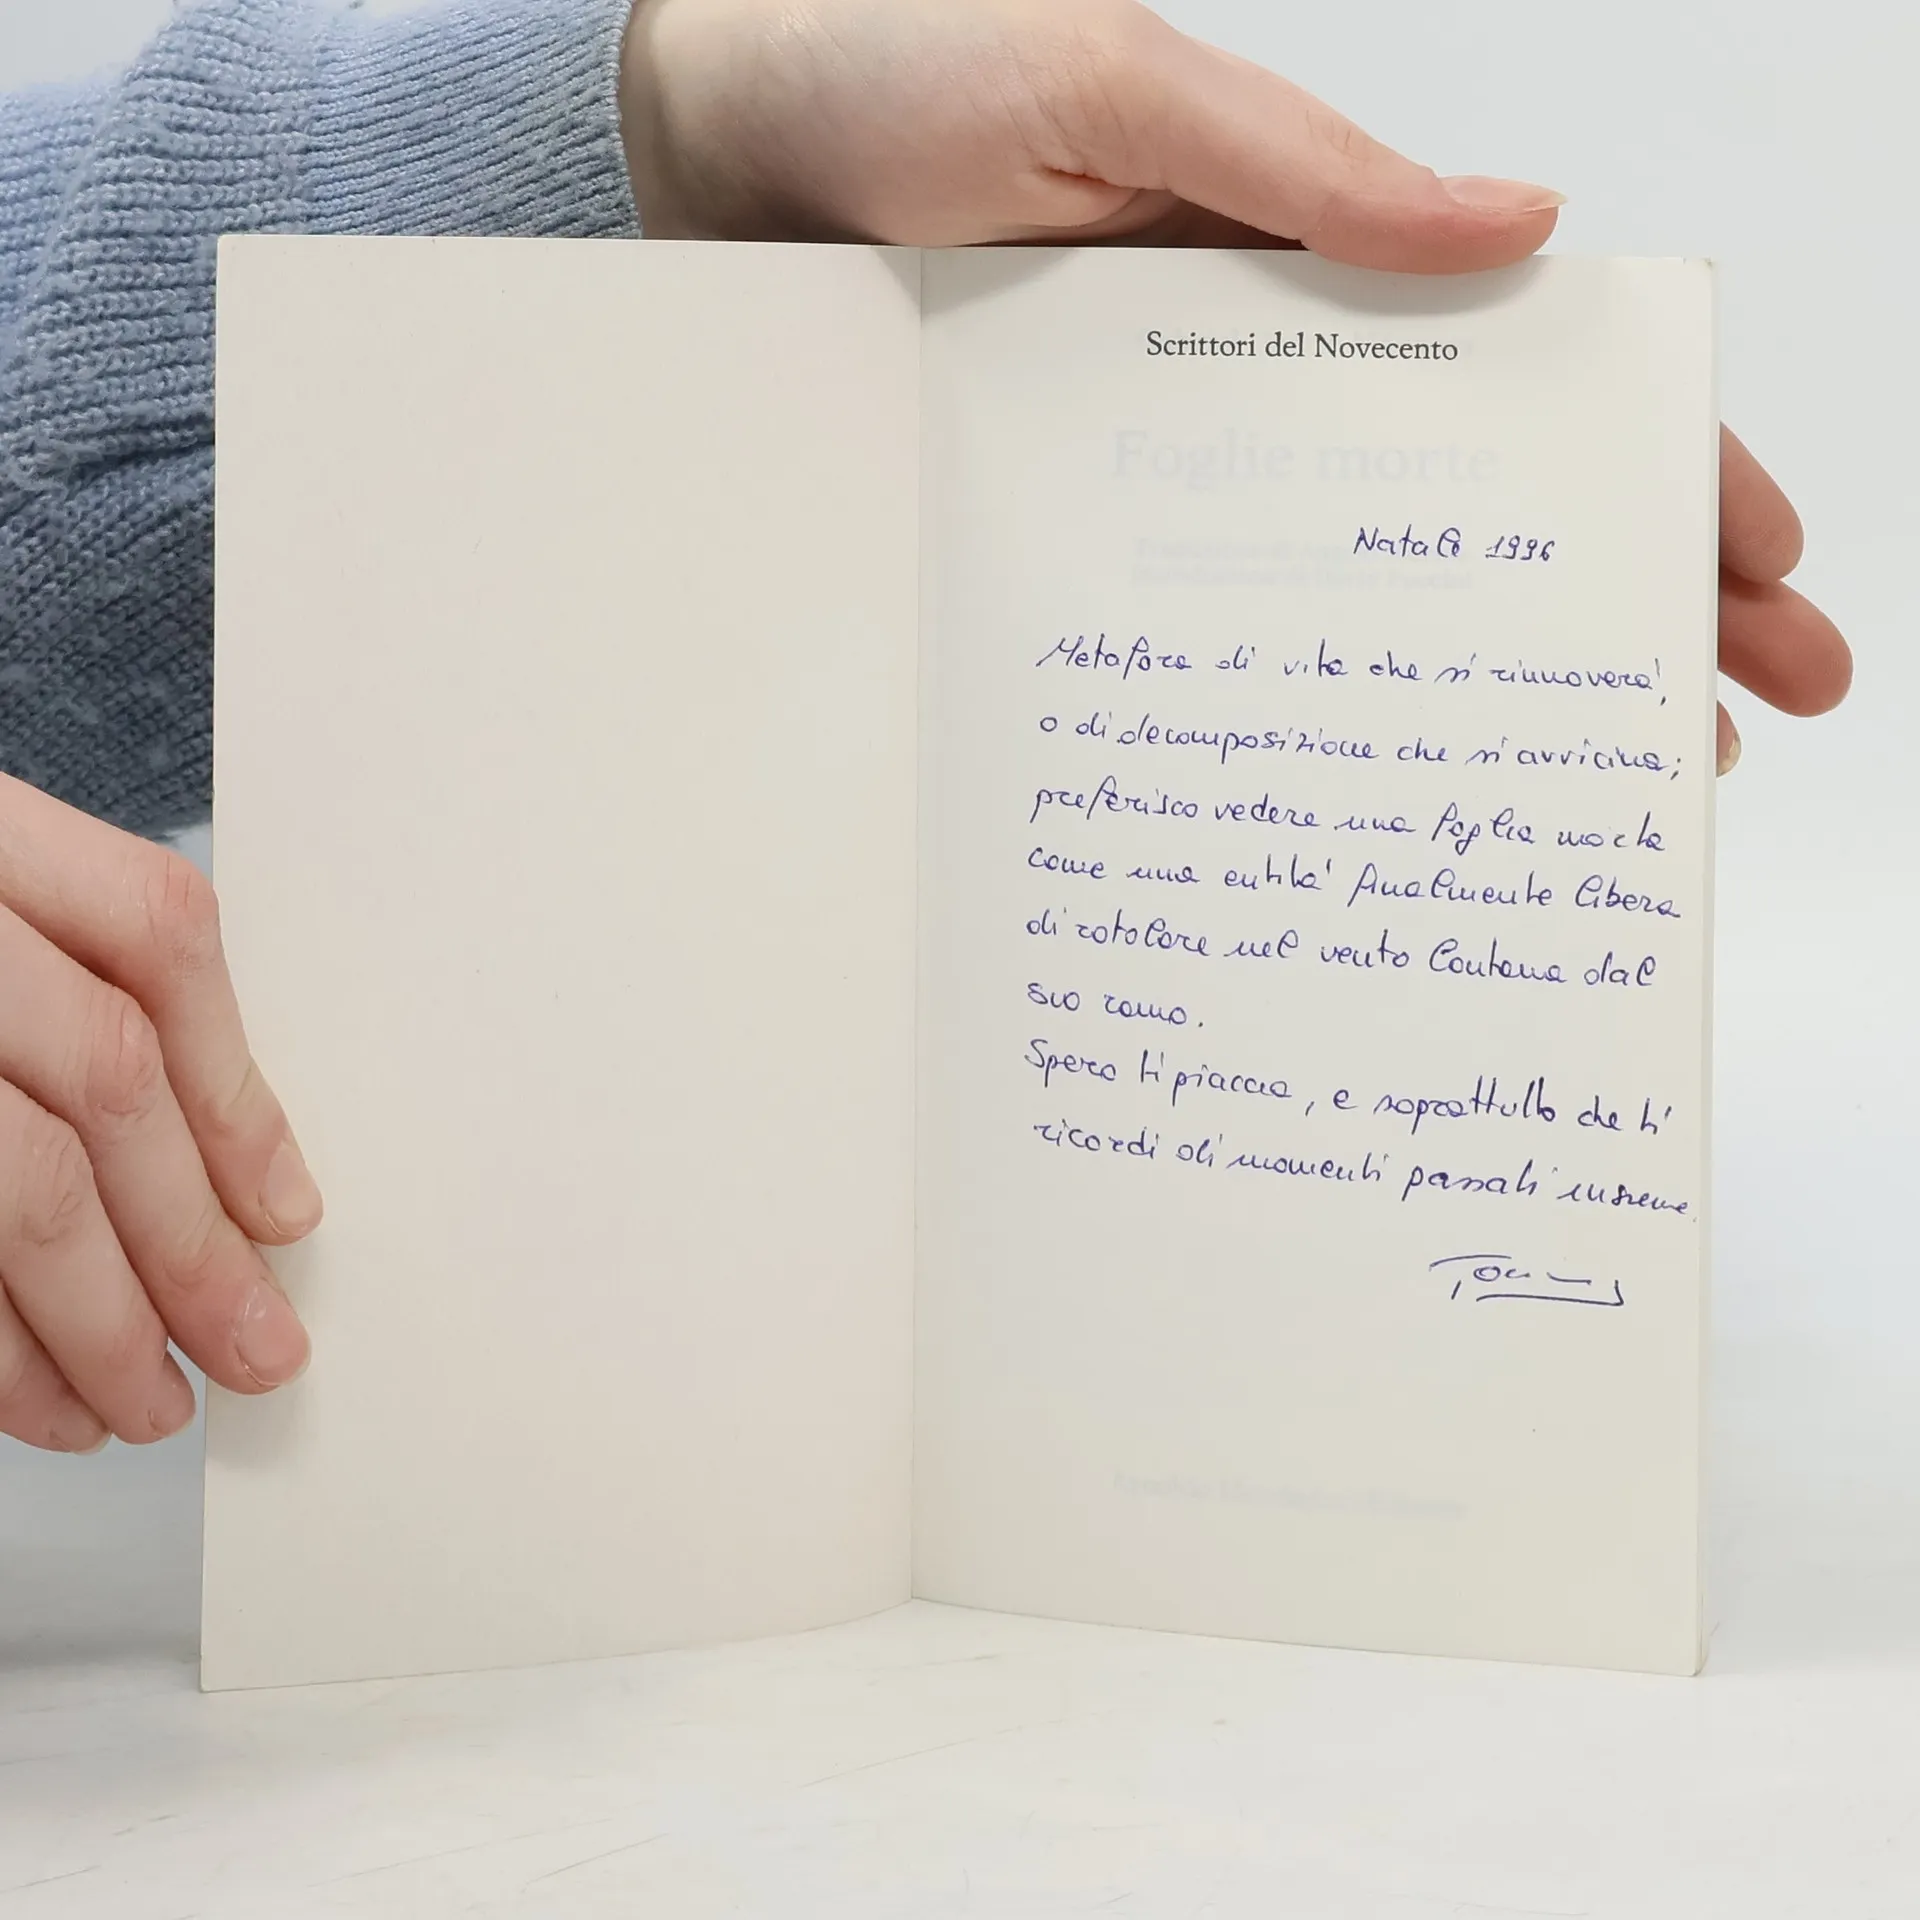 Scrittori del Novecento
Foglie morte
Natale 1996
Metafora di vita che si rinnoverà,
o di decomposizione che si avvicina;
preferisco vedere una foglia morta
come una entità finalmente libera
di rotolare nel vento lontana dal
suo ramo.
Spero ti piaccia, e soprattutto che ti
ricordi di momenti passati insieme.